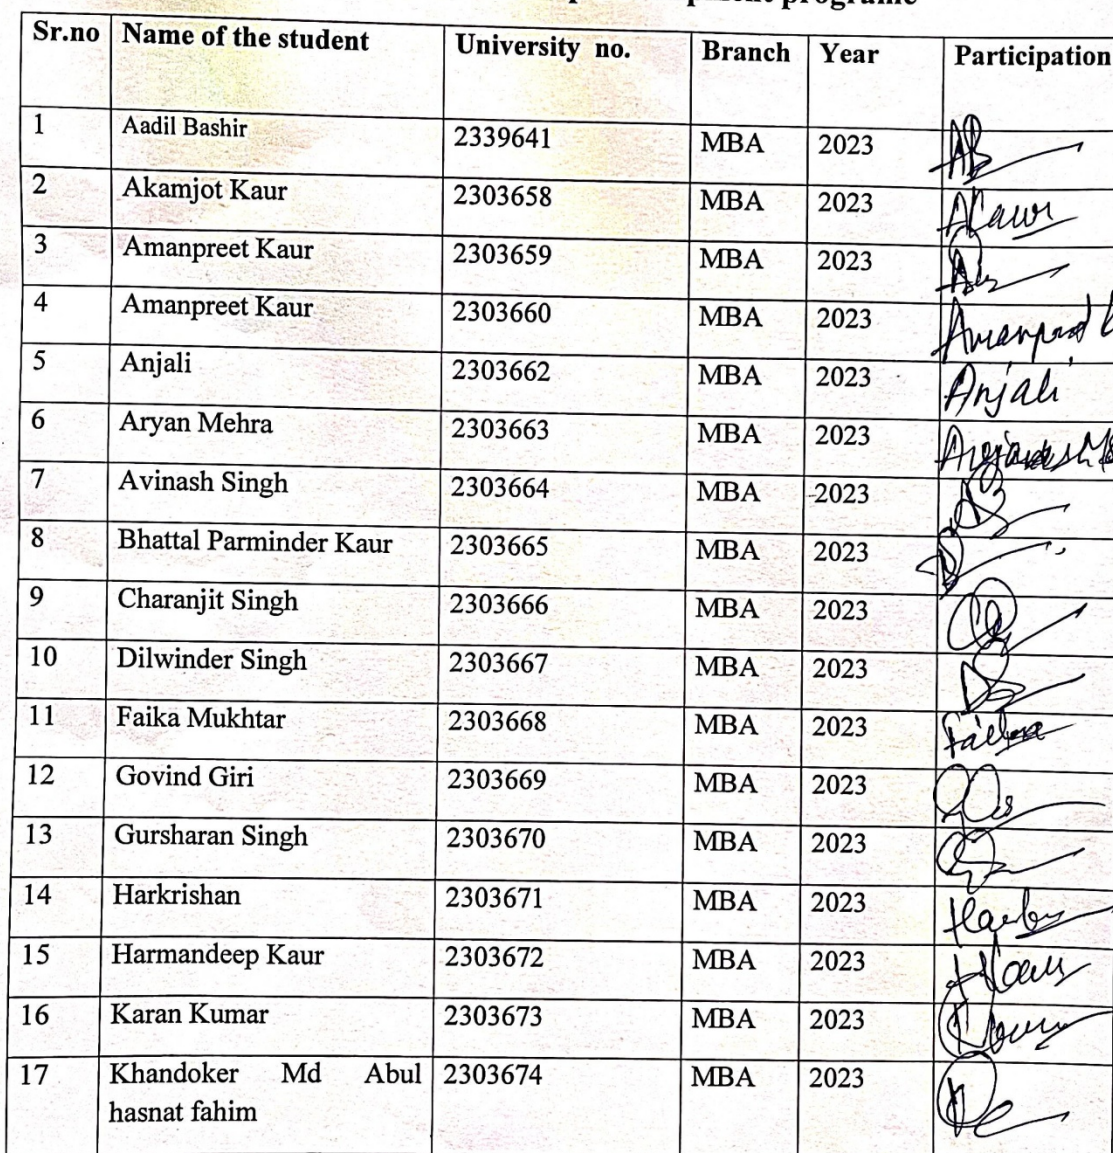 programe
Sr.no Name of the student University no. Branch Year Participation
1 Aadil Bashir 2339641 MBA 2023
2 Akamjot Kaur 2303658 MBA 2023 AKaur
3 Amanpreet Kaur 2303659 MBA 2023
4 Amanpreet Kaur 2303660 MBA 2023
5 Anjali 2303662 MBA 2023 Anjali
6 Aryan Mehra 2303663 MBA 2023
7 Avinash Singh 2303664 MBA 2023
8 Bhattal Parminder Kaur 2303665 MBA 2023
9 Charanjit Singh 2303666 MBA 2023
10 Dilwinder Singh 2303667 MBA 2023
11 Faika Mukhtar 2303668 MBA 2023
12 Govind Giri 2303669 MBA 2023
13 Gursharan Singh 2303670 MBA 2023
14 Harkrishan 2303671 MBA 2023
15 Harmandeep Kaur 2303672 MBA 2023
16 Karan Kumar 2303673 MBA 2023
17 Khandoker Md Abul 2303674 MBA 2023
hasnat fahim